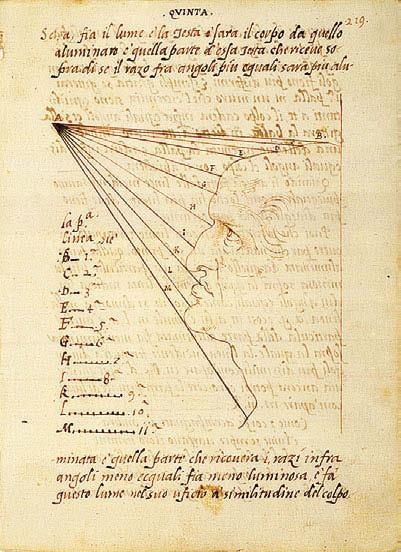 QVINTA.
219.
fia il lume e lla Testa e sara il corpo da quello
aluminato e quella parte d'essa Testa che riceve so
pra di se il razo fra angoli piu equali sara piu alu-
B.
D
E
F
G
H
I
K
L
M
la p.ª
linea sie
B 1ª
C. 2ª
D 3ª
E 4ª
F 5ª
G 6ª
H
I 8ª
K 9ª
L 10ª
M 11ª
minata e quella parte che ricevera i razi infra
angoli meno ecquali fia meno luminosa, e fa
questo lume nel suo uficio a similitudine del colpo.